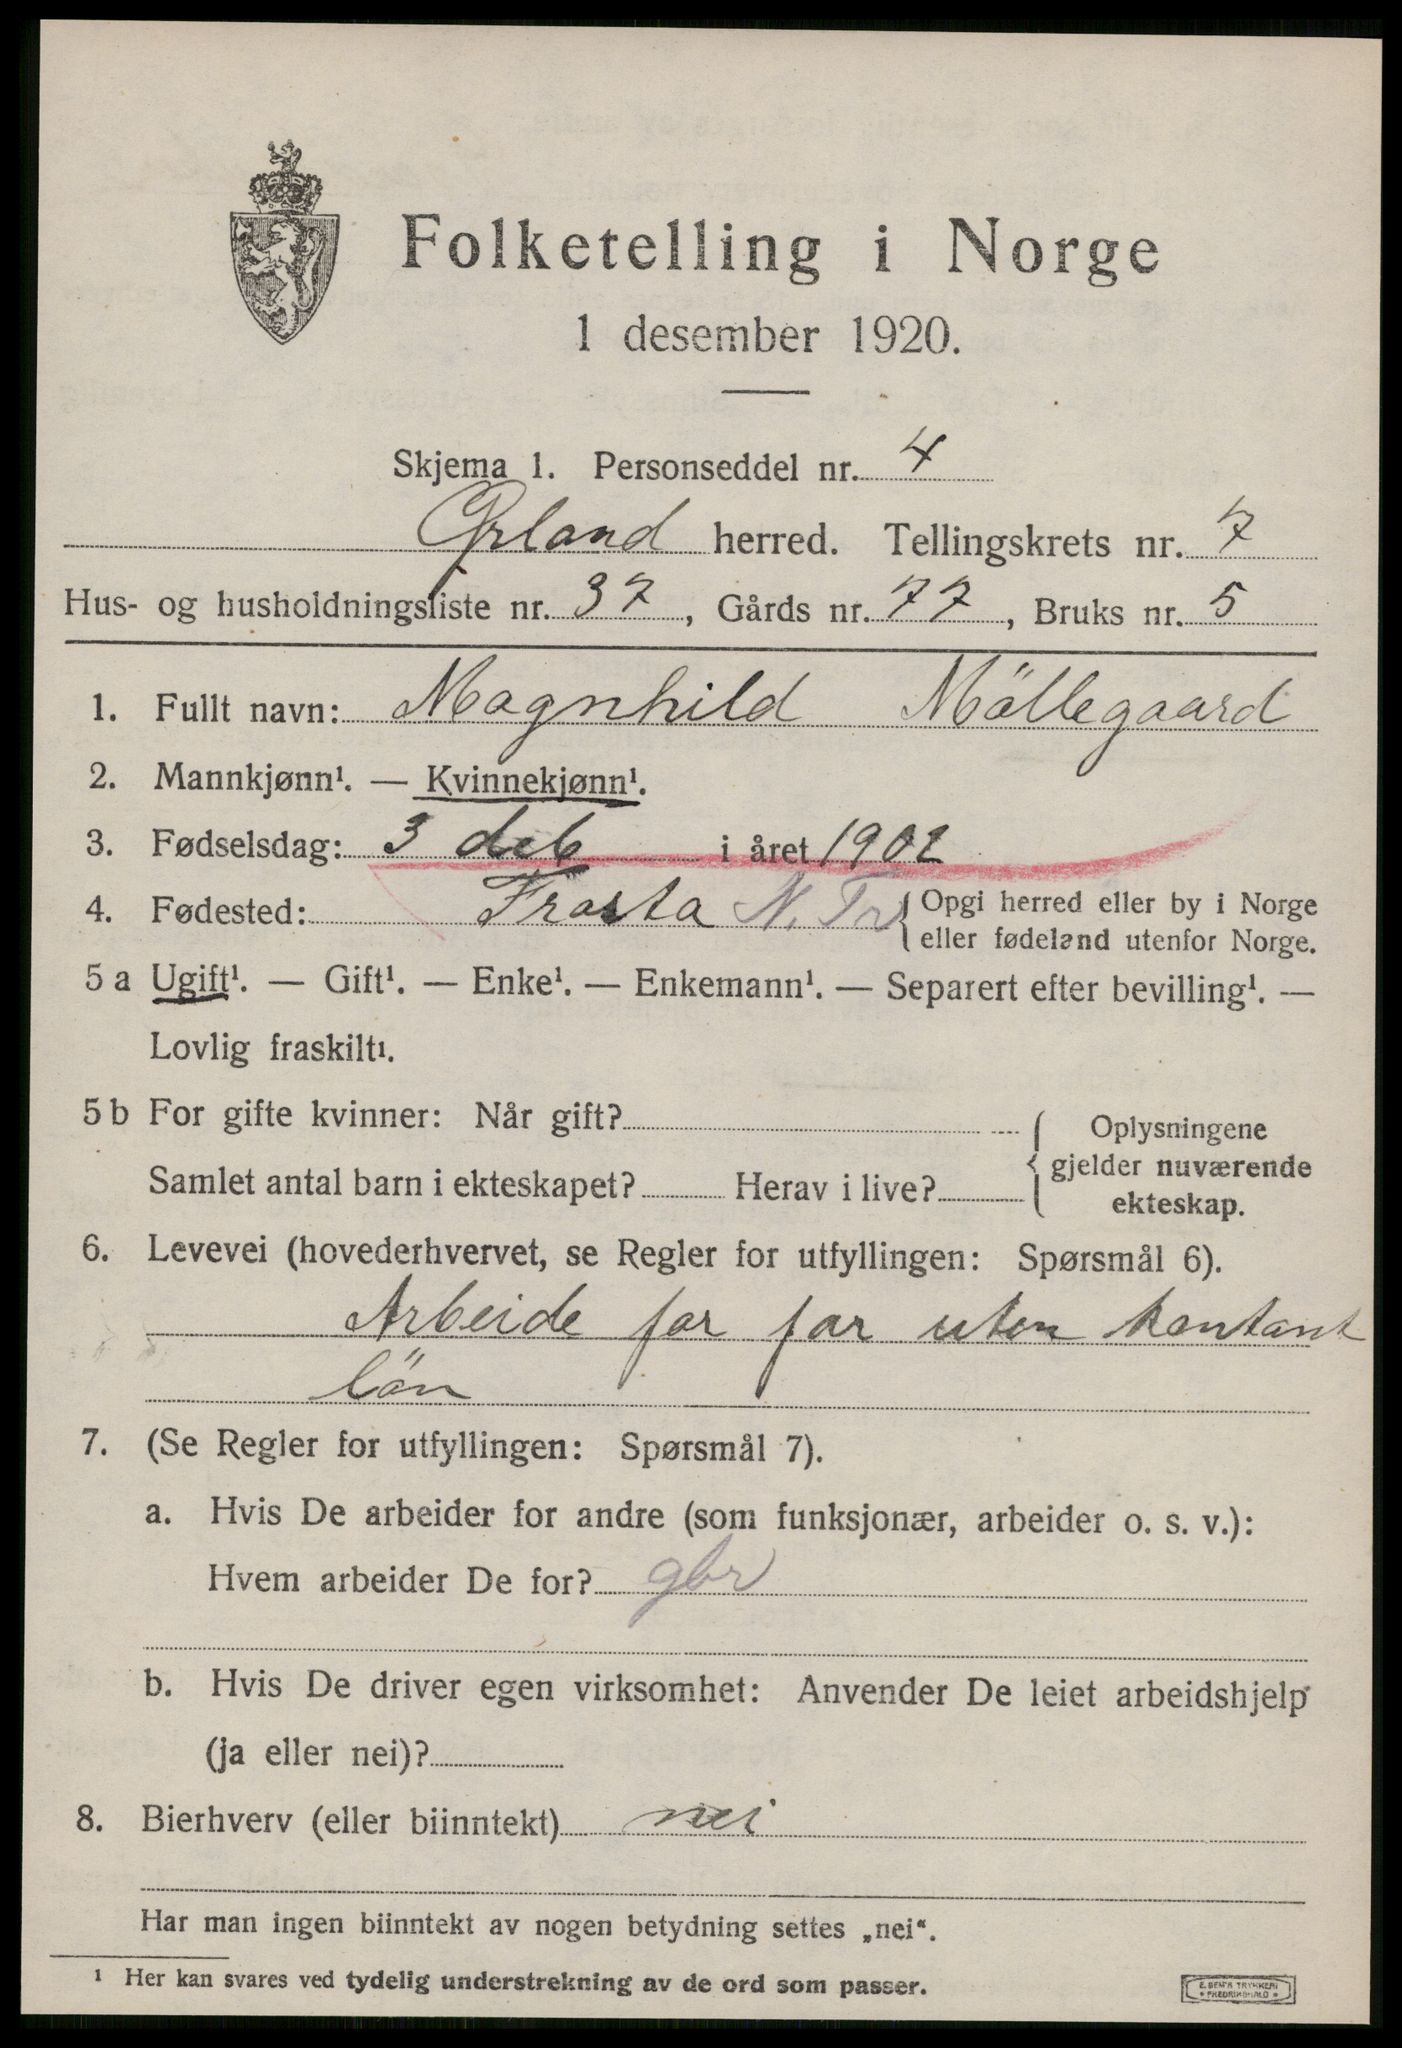 Folketelling i Norge
1 desember 1920.
Skjema 1. Personseddel nr. 4
Ørland herred. Tellingskrets nr. 7
Hus- og husholdningsliste nr. 37, Gårds nr. 77, Bruks nr. 5
1. Fullt navn: Magnhild Möllegaard
2. Mannkjønn¹. — Kvinnekjønn¹.
3. Fødselsdag: 3 deb i året 1902
4. Fødested: Frosta N. Tr { Opgi herred eller by i Norge
eller fødeland utenfor Norge.
5 a Ugift¹. — Gift¹. — Enke¹. — Enkemann¹. — Separert efter bevilling¹. —
Lovlig fraskilt¹.
5 b For gifte kvinner: Når gift?
Samlet antal barn i ekteskapet? Herav i live?
Oplysningene
gjelder nuværende
ekteskap.
6. Levevei (hovederhvervet, se Regler for utfyllingen: Spørsmål 6).
Arbeide for far uten kontant
lön
7. (Se Regler for utfyllingen: Spørsmål 7).
a. Hvis De arbeider for andre (som funksjonær, arbeider o. s. v.):
Hvem arbeider De for? gbr
b. Hvis De driver egen virksomhet: Anvender De leiet arbeidshjelp
(ja eller nei)?
8. Bierhverv (eller biinntekt) nei
Har man ingen biinntekt av nogen betydning settes „nei“.
¹ Her kan svares ved tydelig understrekning av de ord som passer.
E. SEM'S TRYKKERI
• FREDRIKSHALD •